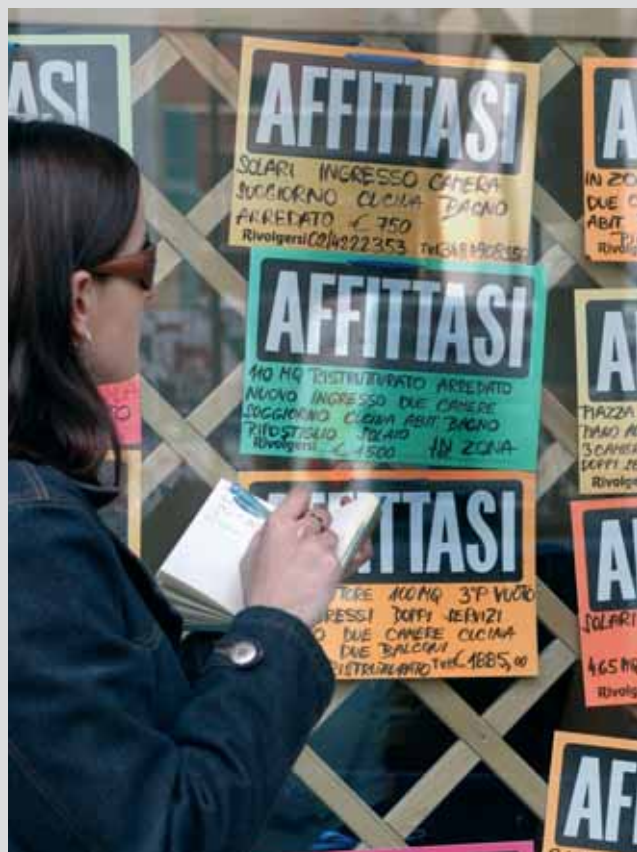 ASI
AFFITTASI
SOLARI INGRESSO CAMERA
SOGGIORNO CUCINA BAGNO
ARREDATO € 750
Rivolgersi 02/4222353
AFFITTASI
110 MQ RISTRUTTURATO ARREDATO
NUOVO INGRESSO DUE CAMERE
SOGGIORNO CUCINA ABIT BAGNO
RIPOSTIGLIO SOLAIO
Rivolgersi € 1500 IN ZONA
TTASI
TORE 100MQ 3°P VUOTO
RESSI DOPPI SERVIZI
O DUE CAMERE CUCINA
DUE BALCONI
€ 1885,00
A
IN ZO
DUE C
ABIT
Rivolg
A
PIAZZA
PIANO
3 CAMER
DOPPI
Rivolg
A
SOLARI
465 MQ
Rivolg
AF